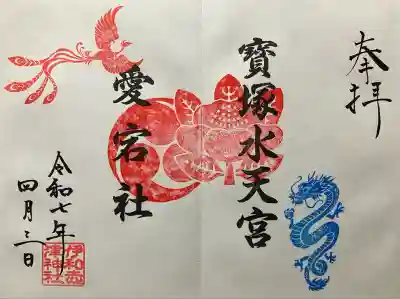 奉拝
寶塚水天宮
愛宕社
令和七年
四月三日
伊和志
津神社